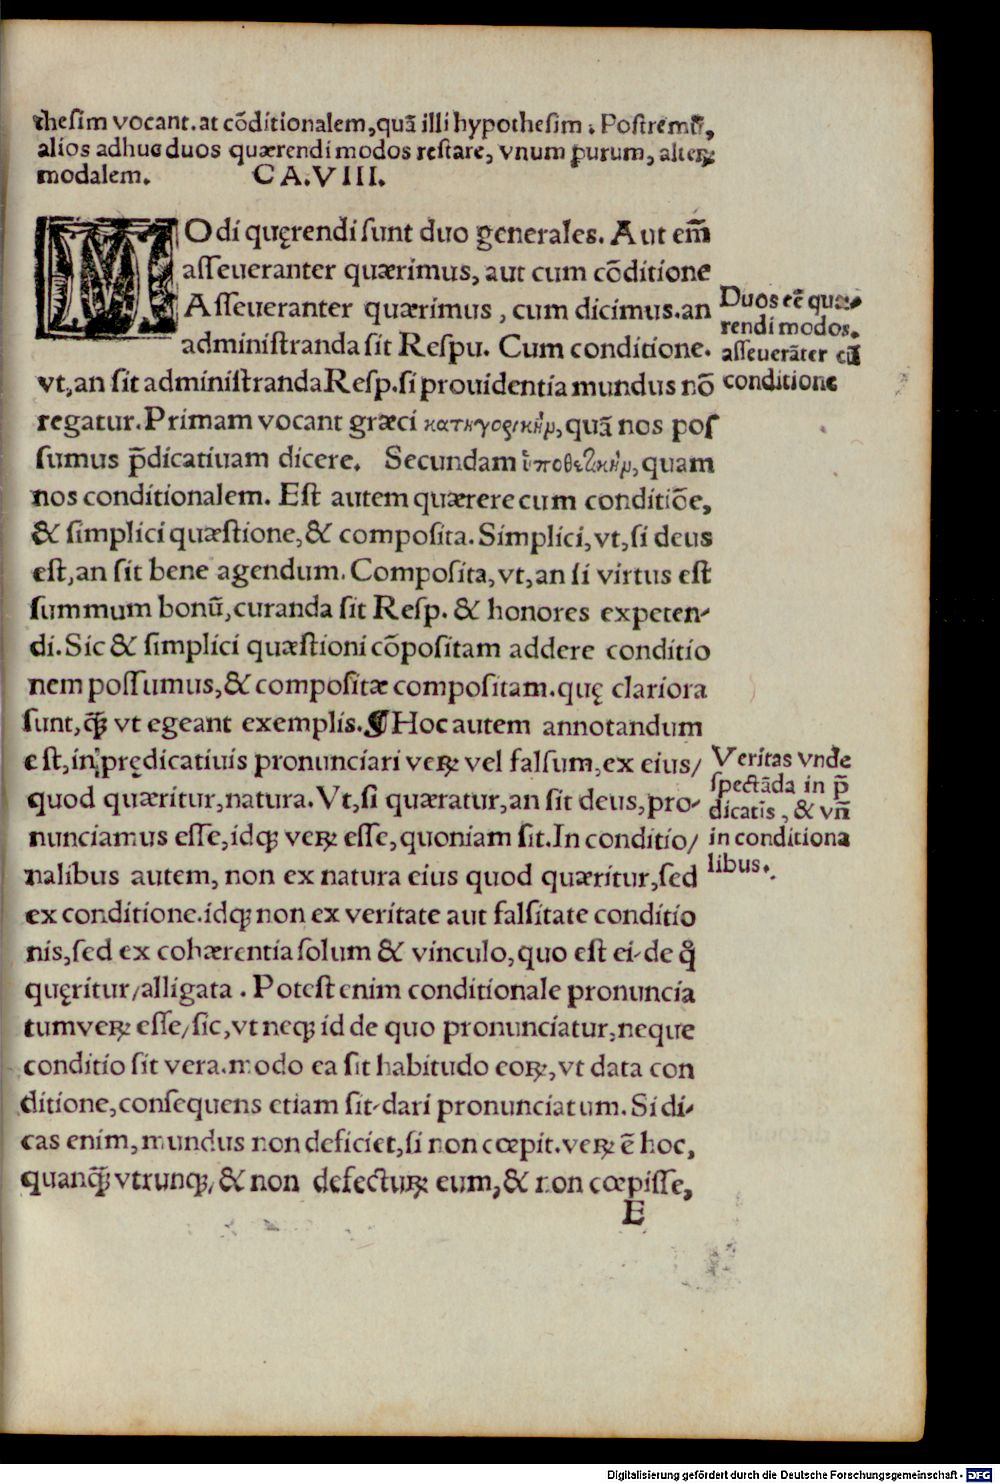 thesim vocant. at cõditionalem, quã illi hypothesim. Postremũ,
alios adhuc duos quærendi modos restare, vnum purum, alteꝝ
modalem. CA. VIII.
MOdi quęrendi sunt duo generales. Aut em̃
asseueranter quærimus, aut cum cõditione
Asseueranter quærimus, cum dicimus. an
administranda sit Respu. Cum conditione.
vt, an sit administranda Resp. si prouidentia mundus nõ
regatur. Primam vocant græci κατηγορικὴν, quã nos pos
sumus p̃dicatiuam dicere. Secundam ὑποθετικὴν, quam
nos conditionalem. Est autem quærere cum conditiõe,
& simplici quæstione, & composita. Simplici, vt, si deus
est, an sit bene agendum. Composita, vt, an si virtus est
summum bonũ, curanda sit Resp. & honores expeten-
di. Sic & simplici quæstioni cõpositam addere conditio
nem possumus, & compositæ compositam. quę clariora
sunt, q̃ꝫ vt egeant exemplis. ¶ Hoc autem annotandum
est, in prędicatiuis pronunciari veꝝ vel falsum, ex eius/
quod quæritur, natura. Vt, si quæratur, an sit deus, pro-
nunciamus esse, idqꝫ veꝝ esse, quoniam sit. In conditio/
nalibus autem, non ex natura eius quod quæritur, sed
ex conditione. idqꝫ non ex veritate aut falsitate conditio
nis, sed ex cohærentia solum & vinculo, quo est ei-de q̃
quęritur/alligata. Potest enim conditionale pronuncia
tum veꝝ esse/sic, vt neqꝫ id de quo pronunciatur, neque
conditio sit vera. modo ea sit habitudo eoꝝ, vt data con
ditione, consequens etiam sit-dari pronunciatum. Si di-
cas enim, mundus non deficiet, si non cœpit. veꝝ ẽ hoc,
quanq̃ꝫ vtrunqꝫ, & non defectuꝝ eum, & non cœpisse,
E
Duos eẽ quæ-
rendi modos.
asseuerãter cũ
conditione
Veritas vnde
spectãda in p̃
dicatis, & vñ
in conditiona
libus.
Digitalisierung gefördert durch die Deutsche Forschungsgemeinschaft - DFG